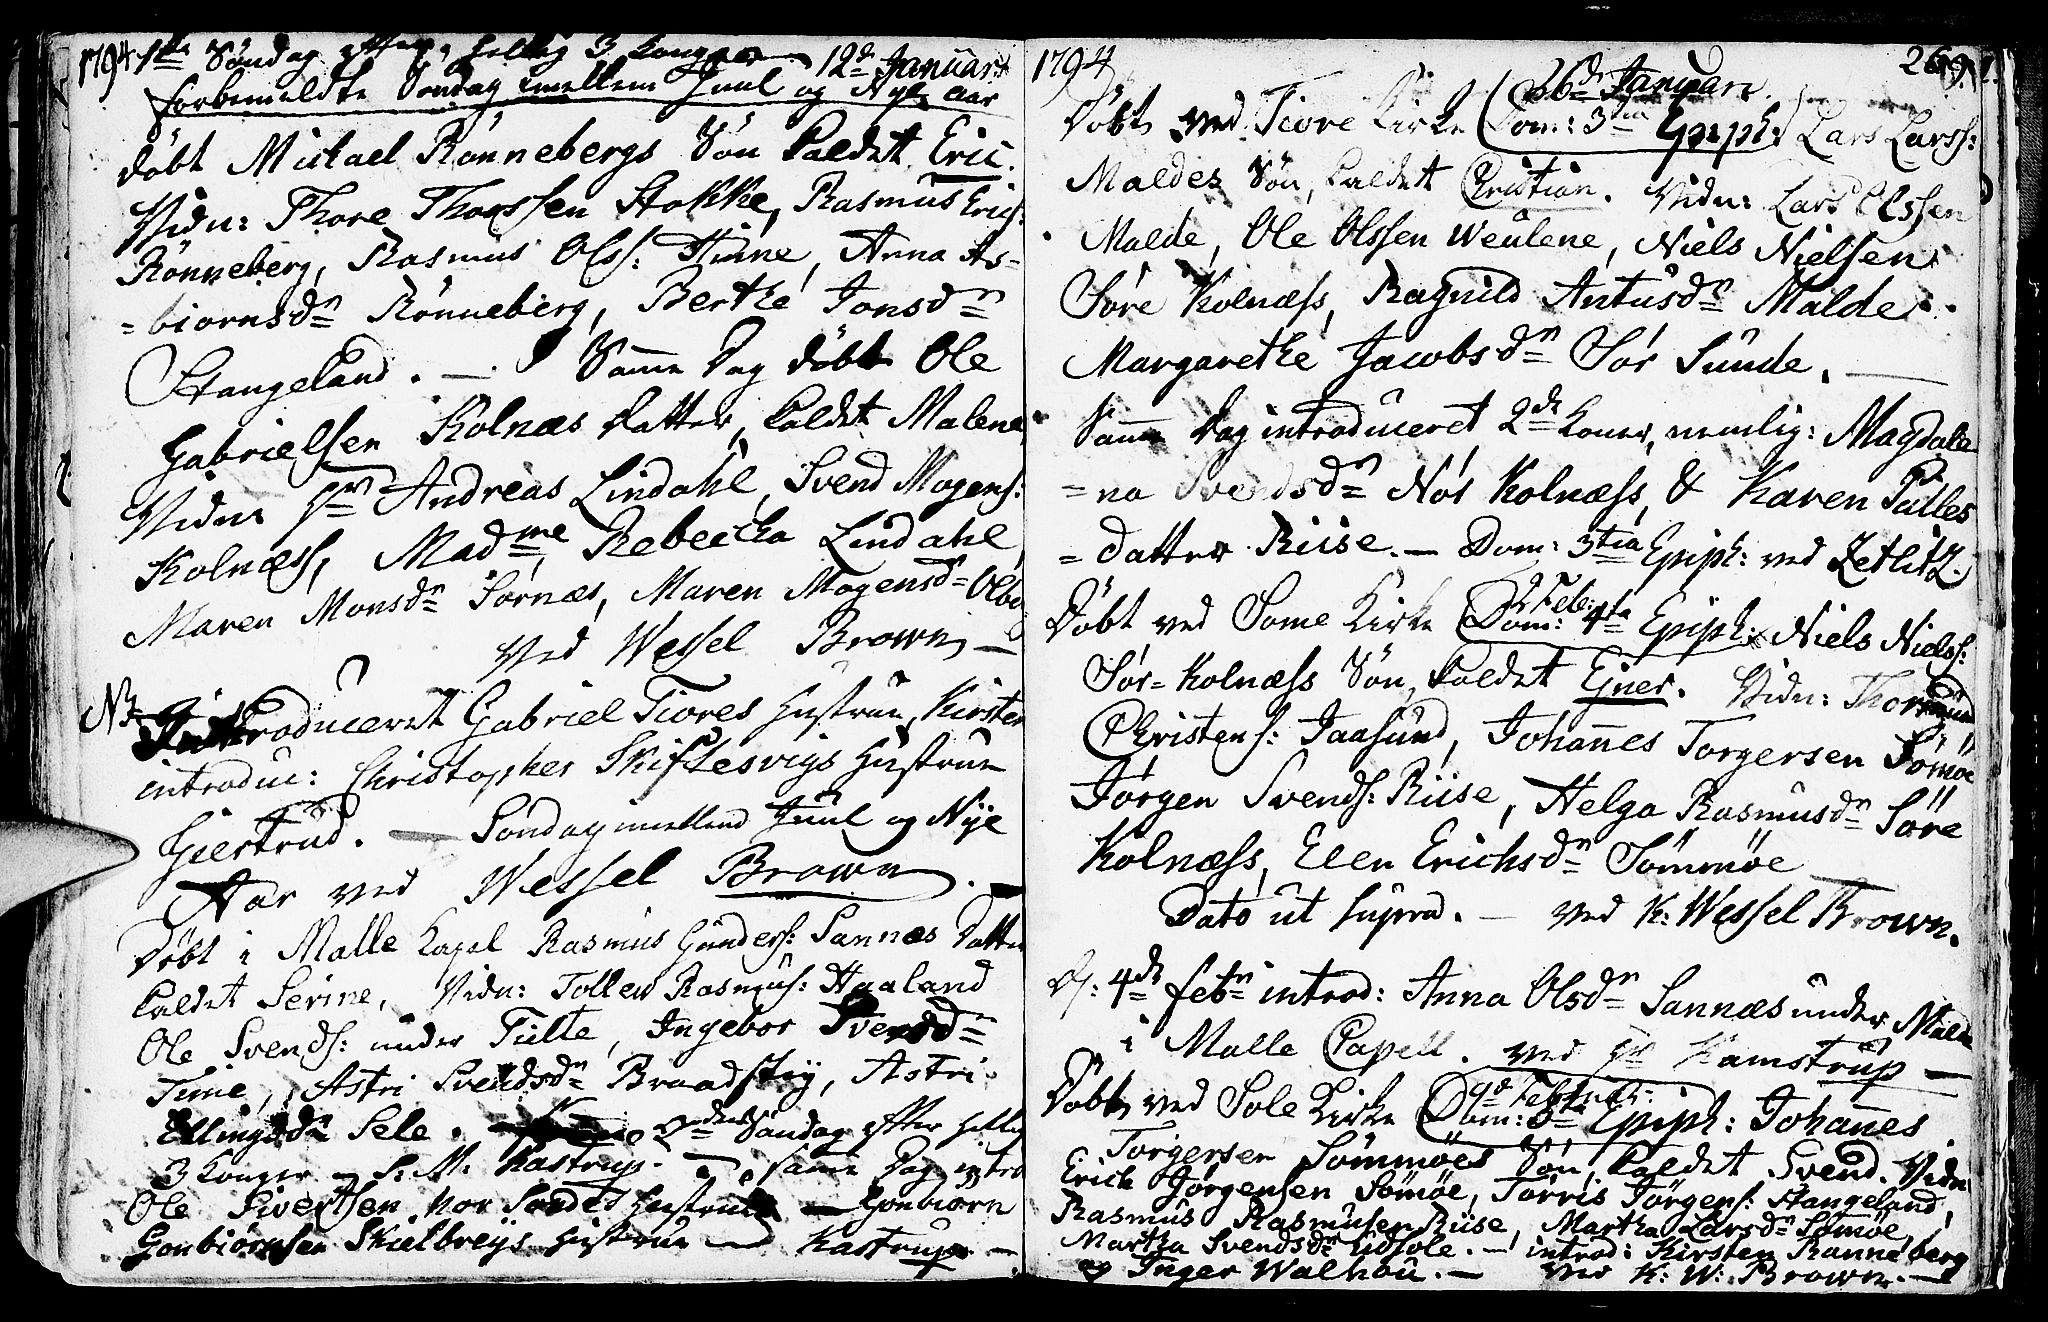 1794 1ste Söndag efter hellig 3 konger 12de Januarii
forbemeldte Söndag imellem Juul og Nyt aar
döbt Michael Rönnebergs Sön kaldet Eric.
Vidn: Thore Thorssen Stokke, Rasmus Erics:
Rönneberg, Rasmus Olss: Hinne, Anna As-
=biornsdn Rönneberg, Berthe Jonsdn
Stangeland. — Samme Dag döbt Ole
Gabrielsen Kolnæs datter, kaldet Malene
Vidn: Hr Andreas Lindahl, Svend Mogens:
Kolnæss, Madme Rebecka Lindahl
Maren Monsdn Sörnæs, Maren Mogensdn
Ved Wessel Brown —
NB Introduceret Gabriel Tiores Hustrue, Kirsten
introduc: Christopher Skiftesvigs Hustrue
Giertrud. — Söndag imellem Juul og Nye
Aar ved Wessel Brown.
Döbt i Malle Kapel Rasmus Gunders: Sannæs datter
kaldet Serine, Vidn: Tollew Rasmus: Haaland
Ole Svends: under Tiilte, Ingebor Svendsdn
Time, Astri Svendsdn Braadstiy, Astri
Ellingsdn Sele. 2den Söndag efter hellig
3 Konger — S. M. Kastrup. — samme Dag intro
Ole Sivertsen Nor Sondes Hustrue — Gonbiörn
Gonbiörnsen Skielbreijs Hustrue — Kastrup —
1794 269.
26de Januari.
Döbt ved Tiore Kirke (Dom: 3tia Epiph:) Lars Larss:
Maldes Sön, kaldet Christian. Vidn: Lars Olssen
Malde, Ole Olssen Weulene, Niels Nielsen
Söre Kolnæss, Ragnild Antusdn Malde.
Margarethe Jacobsdn Sör Sunde. —
Samme Dag introduceret 2de koner, nemlig: Magdale
=na Svendsdn Nör Kolnæss, & Karen Palles
=datter Riise. — Dom: 3tia Epiph: ved Zetlitz.
2 Feb:
Döbt ved Some Kirke (Dom: 4ta Epiph: Niels Nielss:
Sör=Kolnæss Sön, kaldet Ejner. Vidn:
Christens: Jaasund, Johannes Torgersen Sömöe
Jörgen Svends: Riise, Helga Rasmusdn Söre
Kolnæss, Elen Erichsdn Sömmöe
Dato ut supra. — ved K: Wessel Brown.
D: 4de Febr introd: Anna Olsdn Sannæs under Malde
i Malle Capell. ved Hr Kamstrup —
9de Februar:
Döbt ved Sole Kirke (Dom: 5ta Epiph: Johannes
Torgersen Sömmöes Sön, kaldet Svend. Vidn
Erich Jörgensen Sömöe, Törris Jörgens: Stangeland,
Rasmus Rasmusen Riise, Martha Larsdn Sömöe,
Martha Svendsdn Udsole. — introd: Kirsten Ranneberg
og Inger Walhou. — ved K: W: Brown. —